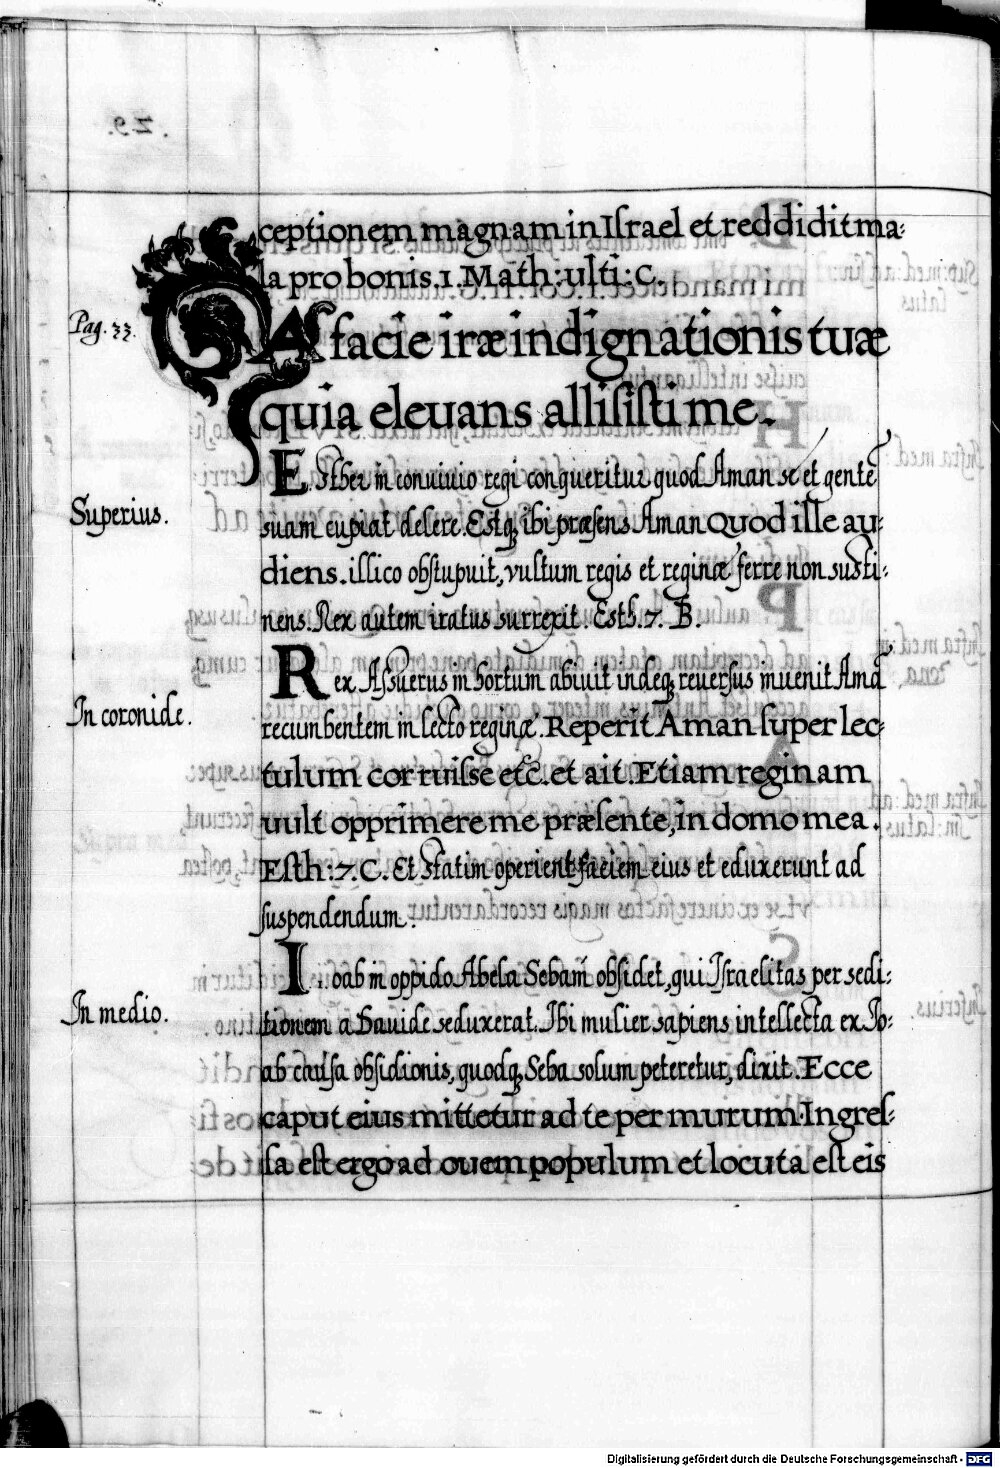 ceptionem magnam in Israel et reddidit ma-
la pro bonis. 1. Math: ulti: C.
Pag. 33.
A facie iræ indignationis tuæ
quia eleuans allisisti me.
Superius.
Esther in conuiuio regi conqueritur quod Aman se et gentē
suam cupiat delere. Estq; ibi præsens Aman Quod ille au-
diens. illico obstupuit, vultum regis et reginæ ferre non susti-
nens. Rex autem iratus surrexit. Esth. 7. B.
In coronide.
Rex Assuerus in hortum abiuit indeq; reuersus inuenit Amā
recumbentem in lecto reginæ. Reperit Aman super lec-
tulum corruisse etc. et ait. Etiam reginam
uult opprimere me præsente, in domo mea.
Esth: 7. C. Et statim operient faciem eius et eduxerunt ad
suspendendum.
In medio.
Ioab in oppido Abela Sebam obsidet, qui Israelitas per sedi-
tionem a Dauide seduxerat. Ibi mulier sapiens intellecta ex Jo-
ab causa obsidionis, quodq; Seba solum peteretur, dixit. Ecce
caput eius mittetur ad te per murum. Ingres-
sa est ergo ad ouem populum et locuta est eis
Digitalisierung gefördert durch die Deutsche Forschungsgemeinschaft - DFG